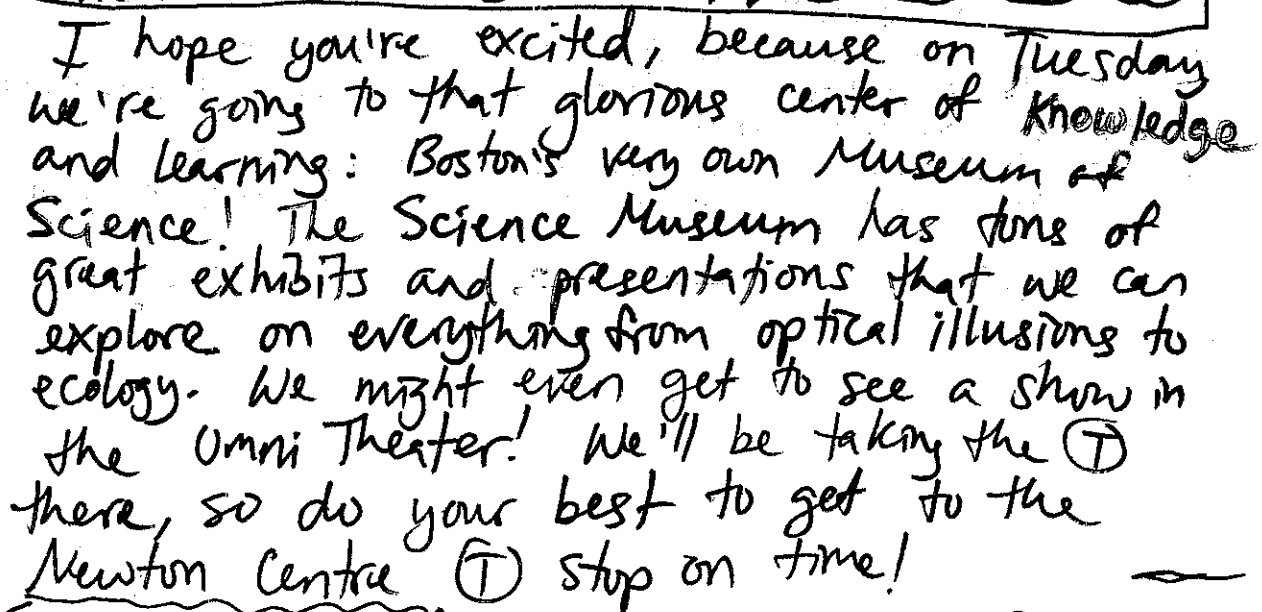 I hope you're excited, because on Tuesday
we're going to that glorious center of Knowledge
and learning: Boston's very own Museum of
Science! The Science Museum has tons of
great exhibits and presentations that we can
explore on everything from optical illusions to
ecology. We might even get to see a show in
the Omni Theater! We'll be taking the Ⓣ
there, so do your best to get to the
Newton Centre Ⓣ stop on time!